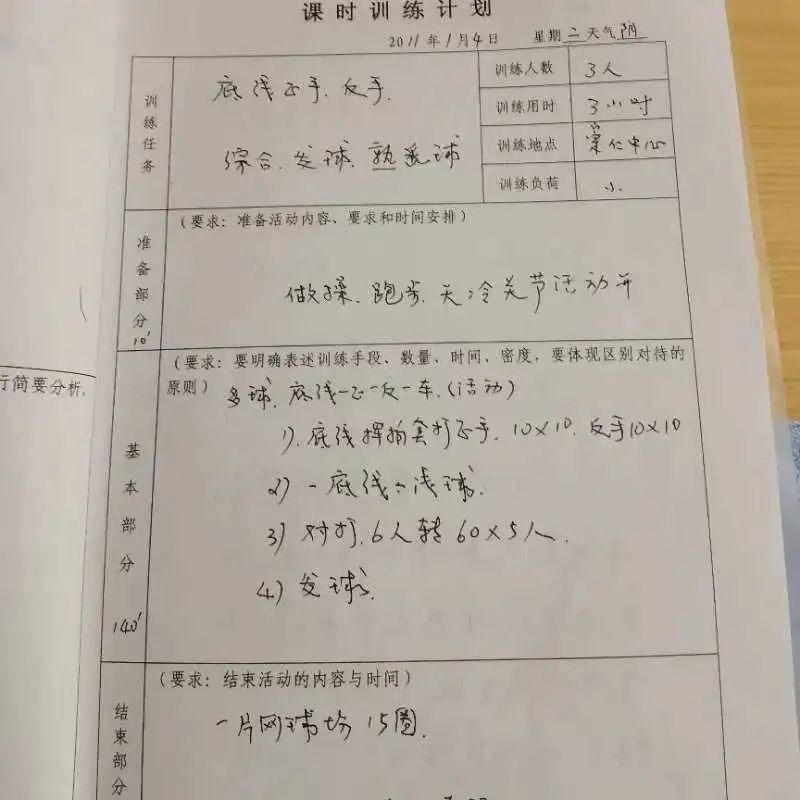 课时训练计划
2011年1月4日 星期二天气阴
训练任务
底线正手、反手、
综合、发球、熟悉球
训练人数 3人
训练用时 3小时
训练地点 仁中心
训练负荷 小
准备部分
10'
(要求:准备活动内容、要求和时间安排)
做操、跑步、天冷关节活动开
行简要分析,
基本部分
140'
(要求:要明确表述训练手段、数量、时间、密度,要体现区别对待的
原则) 多球、底线一正一反一车、(活动)
1)、底线挥拍套打正手、10×10、反手10×10
2) 一底线六浅球、
3) 对打、6人转60×5人、
4) 发球、
结束部分
(要求:结束活动的内容与时间)
一片网球场 15圈、